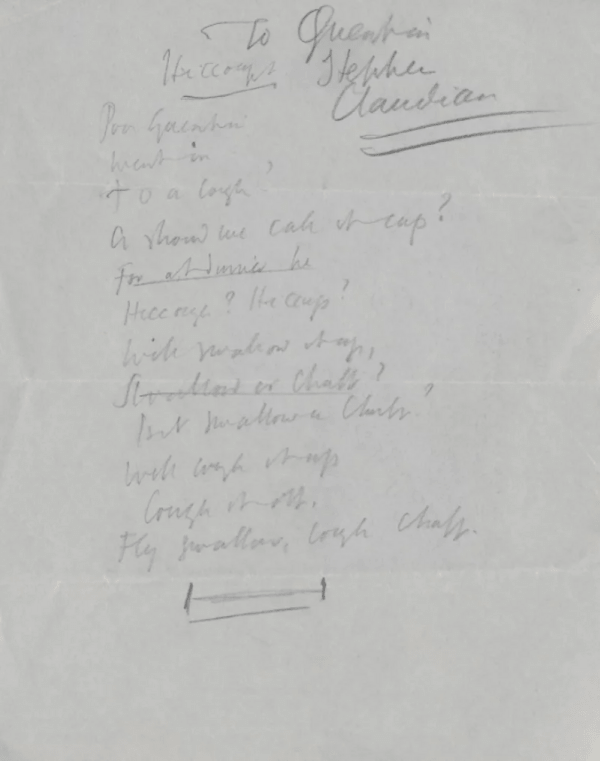 To Quentin
Hiccoups Stephen
Claudian
Poor Quentin
went in
To a cough,
O should we call it cup?
For at dinner he
Hiccough? Hiccup?
We'll swallow it up,
Swallow or Chaff?
Isit swallow or Chaff?
We'll cough it up
Cough it off.
Fly swallow, cough chaff.